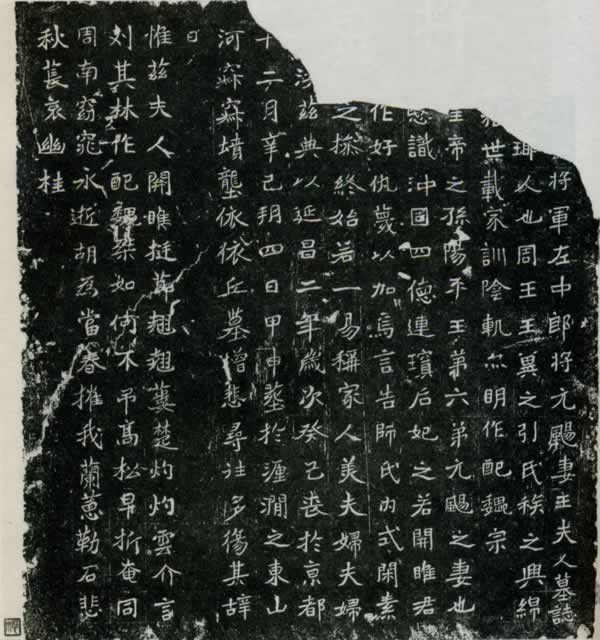 將軍左中郎將元颺妻王夫人墓誌
瑘人也周王王異之引氏族之興綿
世載家訓陰軌尒明作配魏宗
皇帝之孫陽平王第六弟元颺之妻也
志識沖固四德連瓆后妃之若開睢君
作好仇蔑以加焉言告師氏內式閑素
之操終始若一易稱家人美夫婦夫婦
茲典以延昌二年歲次癸巳喪於京都
十二月辛巳朔四日甲申葬於瀍澗之東山
河㝮㝮壝壟依依丘墓增悲尋往多傷其辞
曰
惟茲夫人開睢挺節翹翹蔞楚灼灼雲介言
刘其秝作配魏桀如何不弔高松早折奄同
周南窈窕永逝胡為當春摧我蘭蕙勒石悲
秋萇哀幽桂